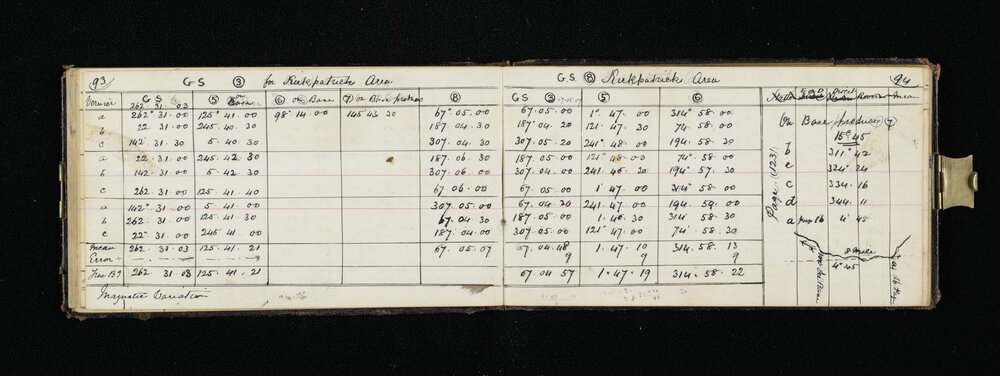 93 G S ③ for Kirkpatrick Area
Vernier G S ⑤ on ⑥ on Base ⑦ on Base produced ⑧
262 . 31 . 03
a 262° 31 . 00 125° 41 . 00 98° 14 . 00 145° 43 30 67° . 05 . 00
b 22 . 31 . 00 245 . 40 . 30 187 . 04 . 30
c 142 . 31 . 30 5 . 40 . 30 307 . 04 . 30
a 22 . 31 . 00 245 . 42 . 30 187 . 06 . 30
b 142 . 31 . 00 5 . 42 . 30 307 . 06 . 00
c 262 . 31 . 00 125 . 41 . 40 67 . 06 . 00
a 142° 31 . 00 5 . 41 . 00 307 . 05 . 00
b 262 . 31 . 00 125 . 41 . 30 67 . 04 . 30
c 22° 31 . 00 245 . 41 . 00 187 . 04 . 00
Mean 262 . 31 . 03 125 . 41 . 21 67 . 05 . 07
Error
True Bg 262 31 . 03 125 . 41 . 21
Magnetic Variation
G . S ⑧ Kirkpatrick Area 94
G S ③ ⑤ ⑥
67 . 05 . 00 1° 47 . 00 314° 58 . 00
187 . 04 . 20 121 . 47 . 30 74 . 58 . 00
307 . 05 . 20 241° 48 . 00 194 . 58 . 30
187 . 05 . 00 121° 48 . 00 74° . 58 . 00
307 . 04 . 00 241 . 46 . 30 194° 57 . 30
67 . 05 . 00 1° 47 . 00 314° 58 . 00
67 . 04 . 20 241 . 47 . 00 194 . 59 . 00
187 . 05 . 00 1 . 46 . 30 314 . 58 . 30
307 . 05 . 00 121° 47 . 00 74 . 58 . 30
67 . 04 . 48 1 . 47 . 10 314 . 58 . 13
9 9 9
67 04 57 1 . 47 . 19 314 . 58 . 22
Direct Mean
On Base produced ⑦
15° 45
f 311° 42
e 324° 24
c 334 . 16
d 344 . 11
a pog 16 4° 45
Page (123)
8 mile
4° 45